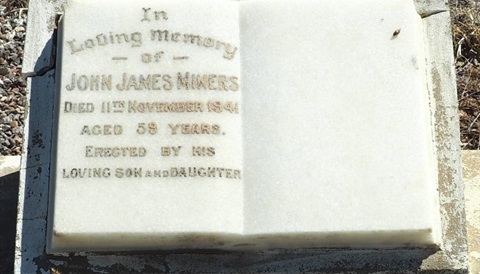 In
Loving Memory
— of —
John James Miners
Died 11th November 1941
Aged 59 Years.
Erected by his
loving son and daughter